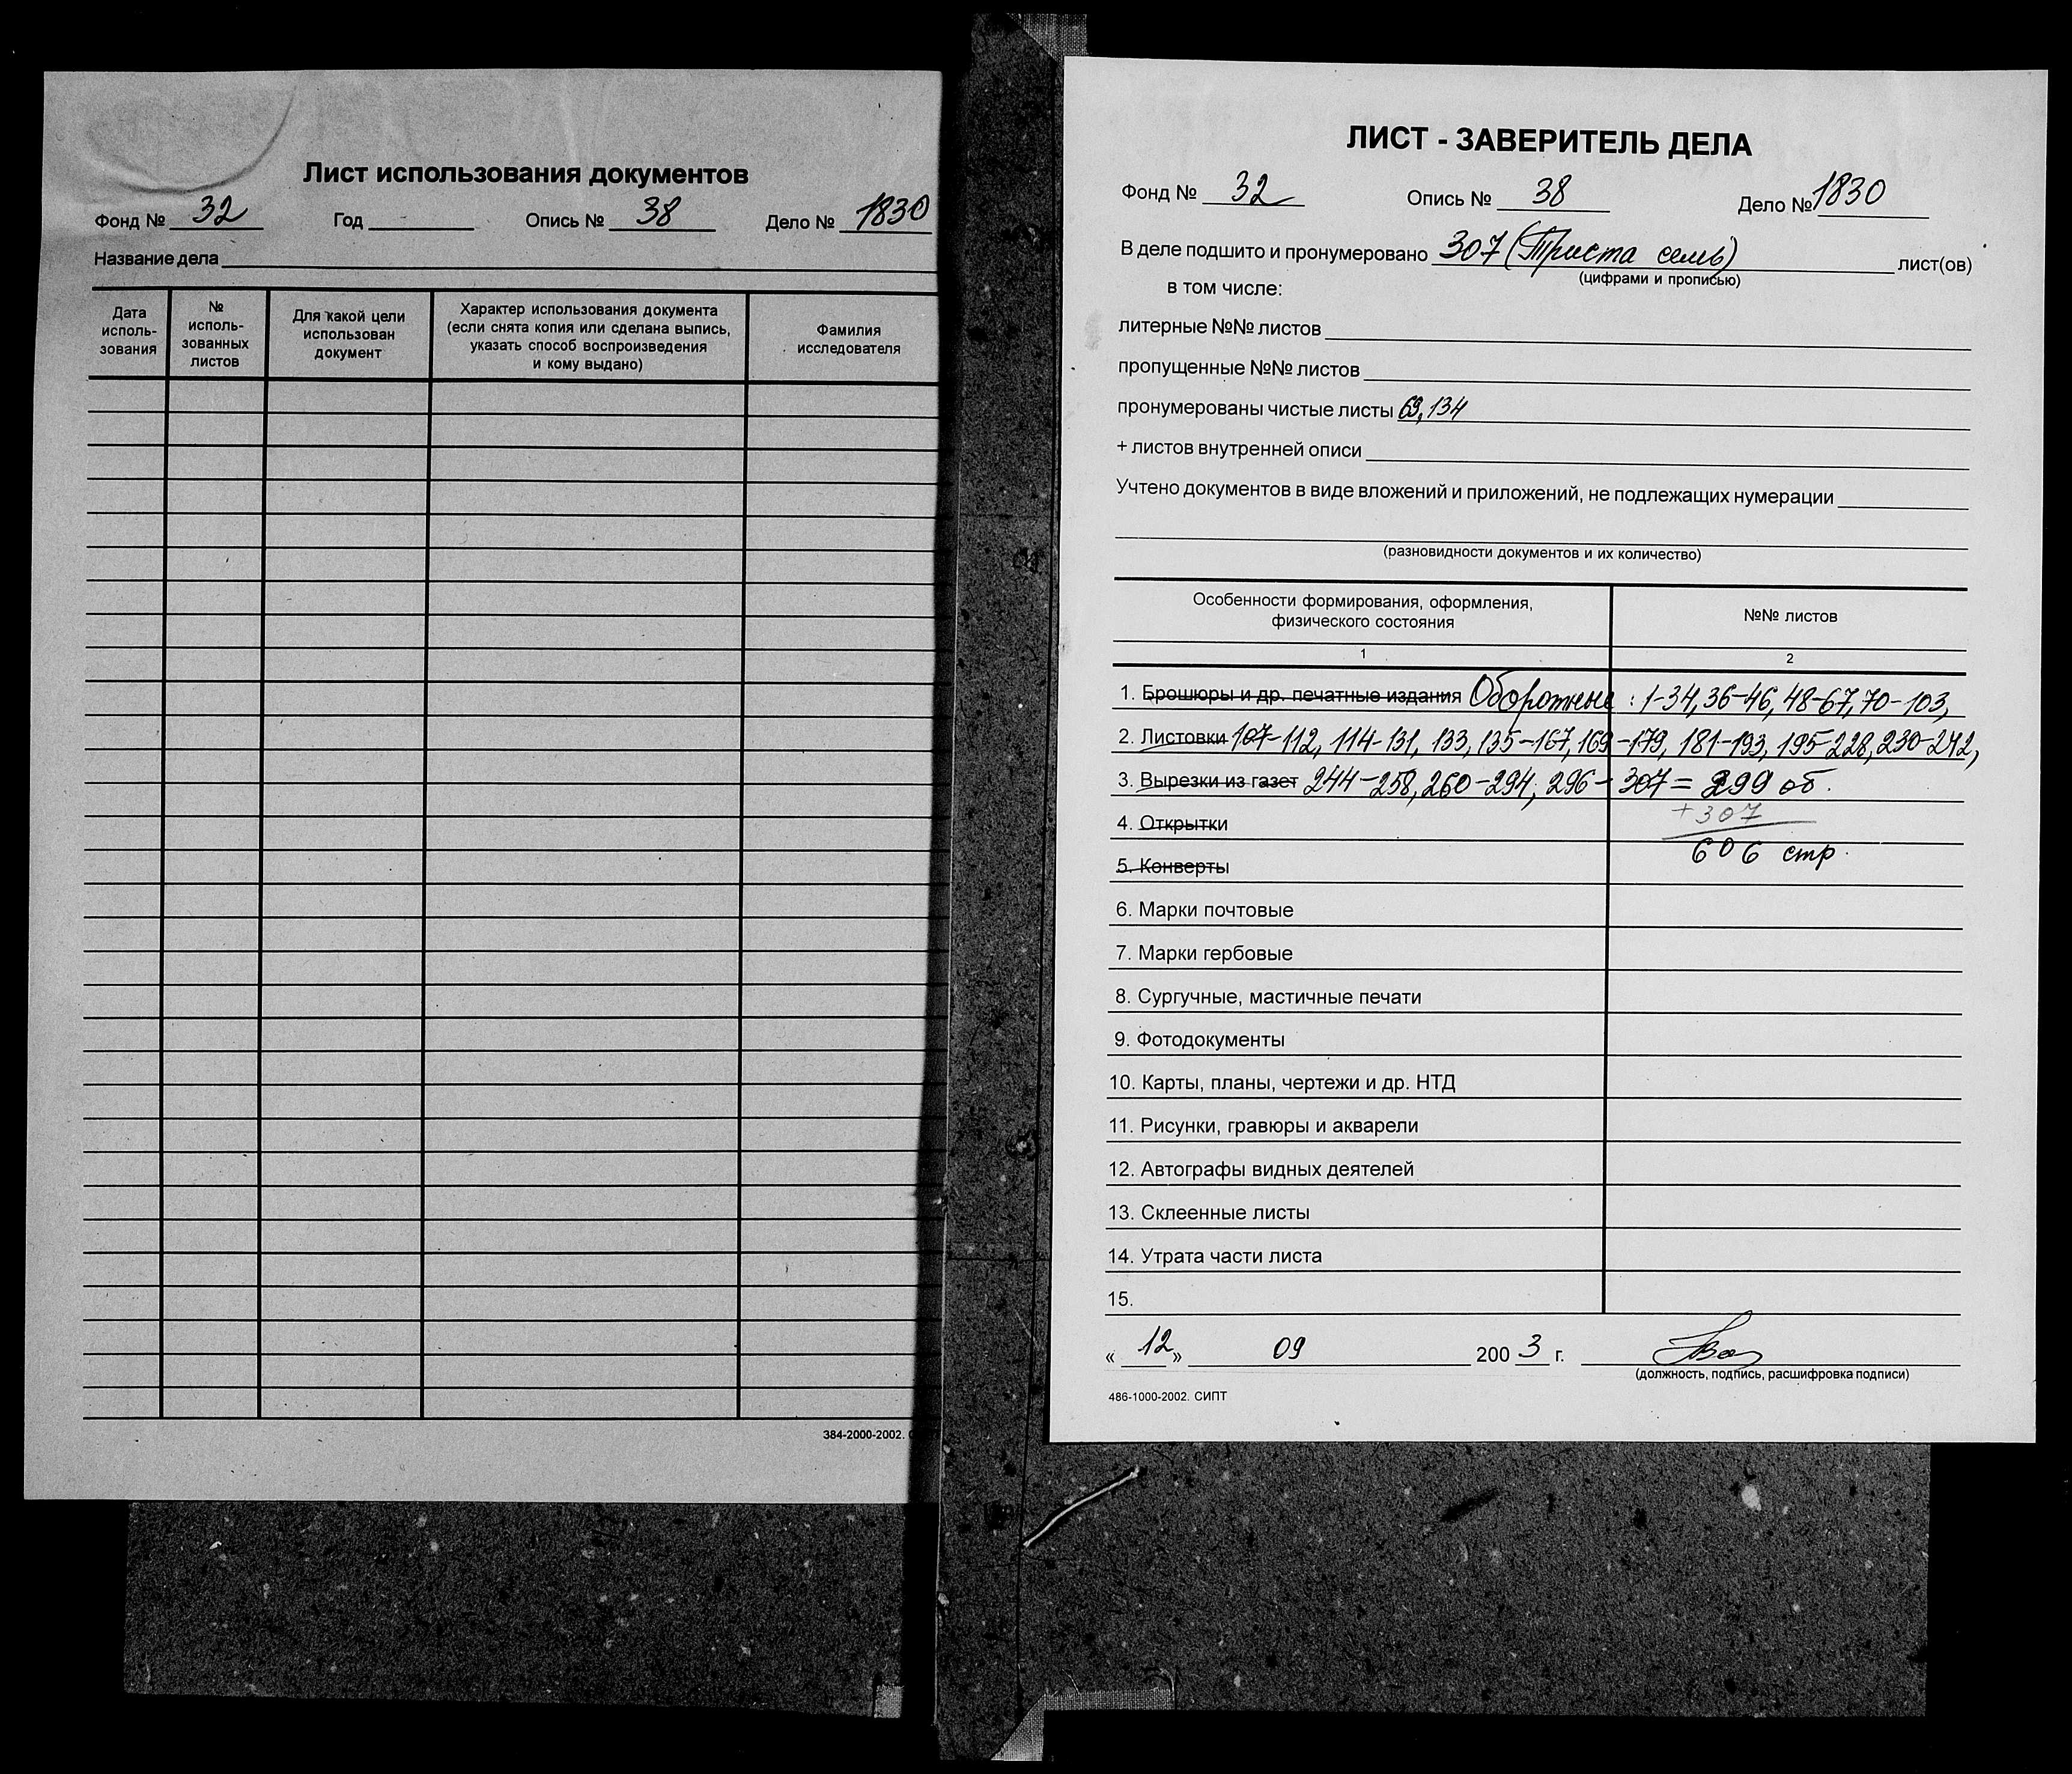 Лист использования документов
Фонд № 32 Год Опись № 38 Дело № 1830
Название дела
Дата исполь-зования
№ исполь-зованных листов
Для какой цели использован документ
Характер использования документа
(если снята копия или сделана выпись,
указать способ воспроизведения
и кому выдано)
Фамилия исследователя
384-2000-2002.
ЛИСТ - ЗАВЕРИТЕЛЬ ДЕЛА
Фонд № 32 Опись № 38 Дело № 1830
В деле подшито и пронумеровано 307 (Триста семь) лист(ов)
(цифрами и прописью)
в том числе:
литерные №№ листов
пропущенные №№ листов
пронумерованы чистые листы 69, 134
+ листов внутренней описи
Учтено документов в виде вложений и приложений, не подлежащих нумерации
(разновидности документов и их количество)
Особенности формирования, оформления,
физического состояния
№№ листов
1 2
1. Брошюры и др. печатные издания Оборотные: 1-34, 36-46, 48-67, 70-103,
2. Листовки 107-112, 114-131, 133, 135-167, 169-179, 181-193, 195-228, 230-242,
3. Вырезки из газет 244-258, 260-294, 296-307 = 299 об.
+307
4. Открытки
606 стр.
5. Конверты
6. Марки почтовые
7. Марки гербовые
8. Сургучные, мастичные печати
9. Фотодокументы
10. Карты, планы, чертежи и др. НТД
11. Рисунки, гравюры и акварели
12. Автографы видных деятелей
13. Склеенные листы
14. Утрата части листа
15.
« 12 » 09 2003 г.
(должность, подпись, расшифровка подписи)
486-1000-2002. СИПТ